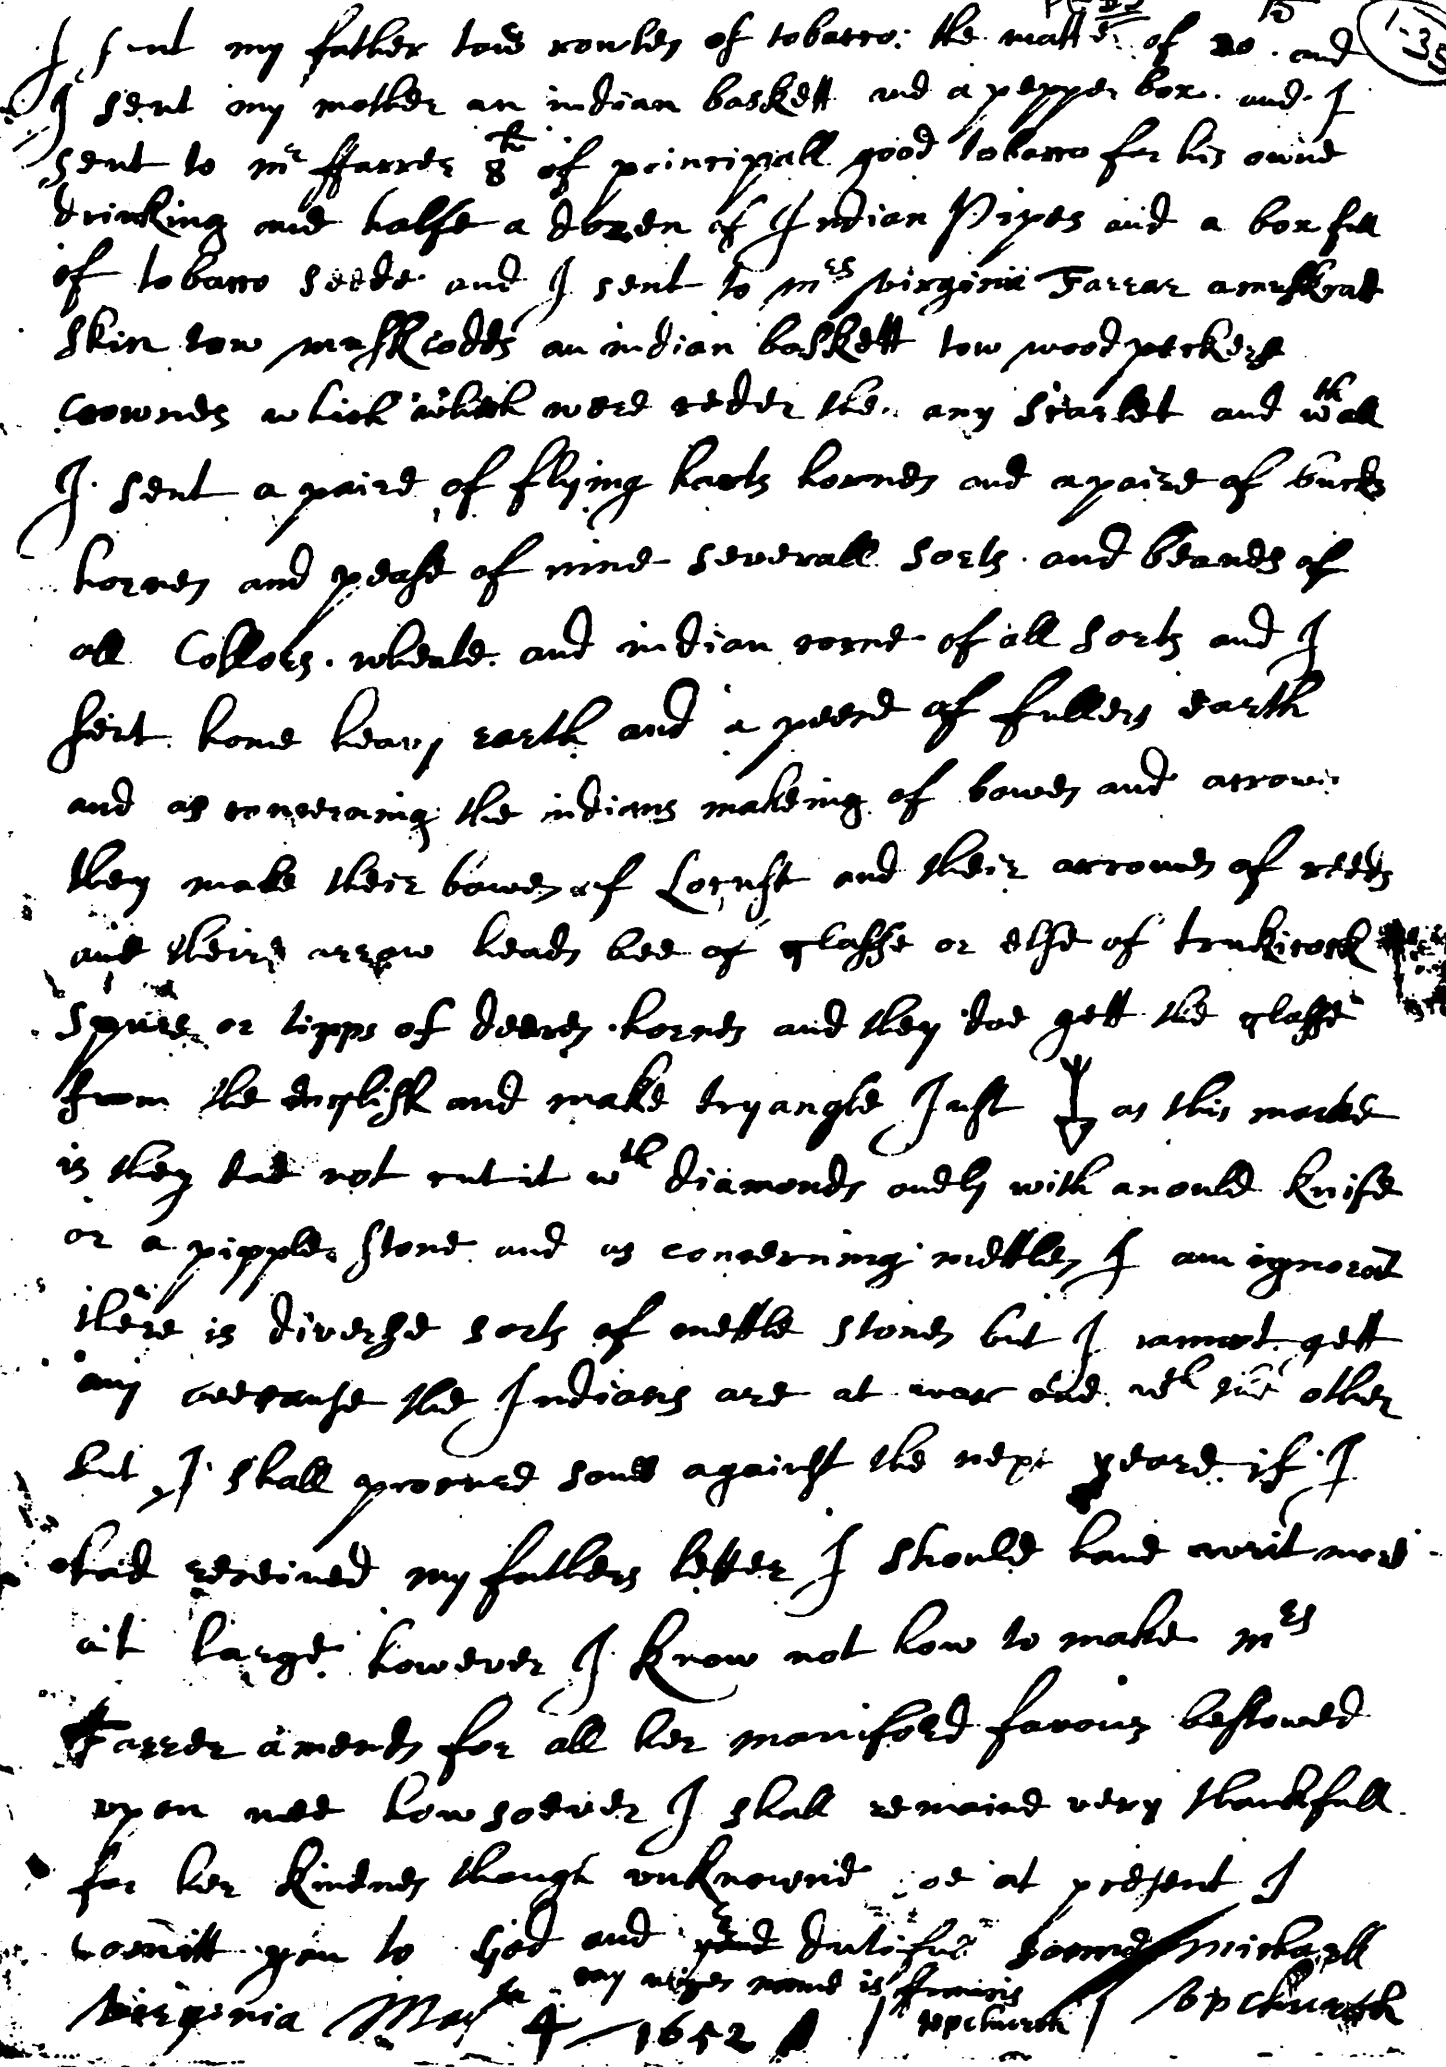 I sent my father towe rowles of tobacco: the matter of 20 . and
I sent my mother an indian baskett and a pepper box. and I
sent to mr ffarrer 8 of principall good tobacco for his owne
drinking and halfe a dozen of Indian Pipes and a box full
of tobacco seede and I sent to mrs virginia Farrar a muskratt
skin tow muskcodds an indian baskett tow woodpeckers
crownes which were reder the any scarlet and wth all
I sent a paire of flying harts hornes and a paire of bucks
hornes and pease of nine severall sorts . and beanes of
all Collors . wheate . and indian corne of all sorts and I
sent home heavy earth and a peece of fullers earth
and as concerning the indians makeing of bowes and arrowes
they make their bowes of Locust and their arrowes of reeds
and theire arrow heads bee of glasse or else of turkicock
spures or tipps of deeres hornes and they doe gett the glasse
from the english and make tryangle Just as this marke
is they doe not cut it wth diamonds onely with an ould knife
or a pipple stone and as concerning mettles I am ignorat
there is diverse sorts of mettle stones but I cannot gett
any beecause the Indians are at warr one wth the other
but I shall procure some against the next yeare if I
had received my fathers letter I should have writ more
at large however I know not how to make mrs
Farrer amends for all her manifold favours bestowed
upon mee howsoever I shall remaine very thankfull
for her kindnes though unknowne soe at present I
comitt you to God and dutifull sonne Michaell
my wifes name is francis
Virginia May 4 1652 upchurch Upchurch
1-35